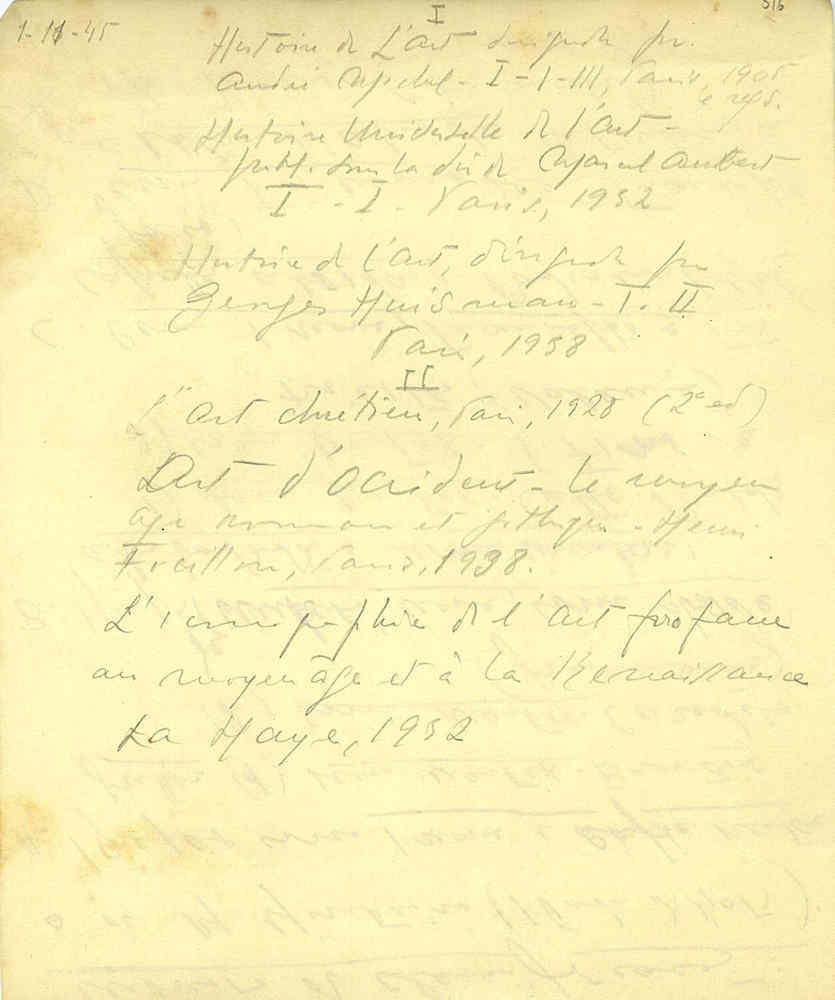 I
516
1-11-45
Histoire de L'art dirigée par
André Michel - I - I - III, Paris, 1905
e segs.
Histoire Universelle de l'art -
publ. sous la dir de Marcel Aubert
I - I - Paris, 1932
Histoire de l'Art, dirigée par
Georges Huisman - I. II
Paris, 1938
II
L'art chrétien, Paris, 1928 (2ª ed)
L'Art d'Occident - le moyen
age roman et gothique - Henri
Focillon, Paris, 1938.
L'iconographie de l'art profane
au moyen âge et à la Renaissance
La Haye, 1932